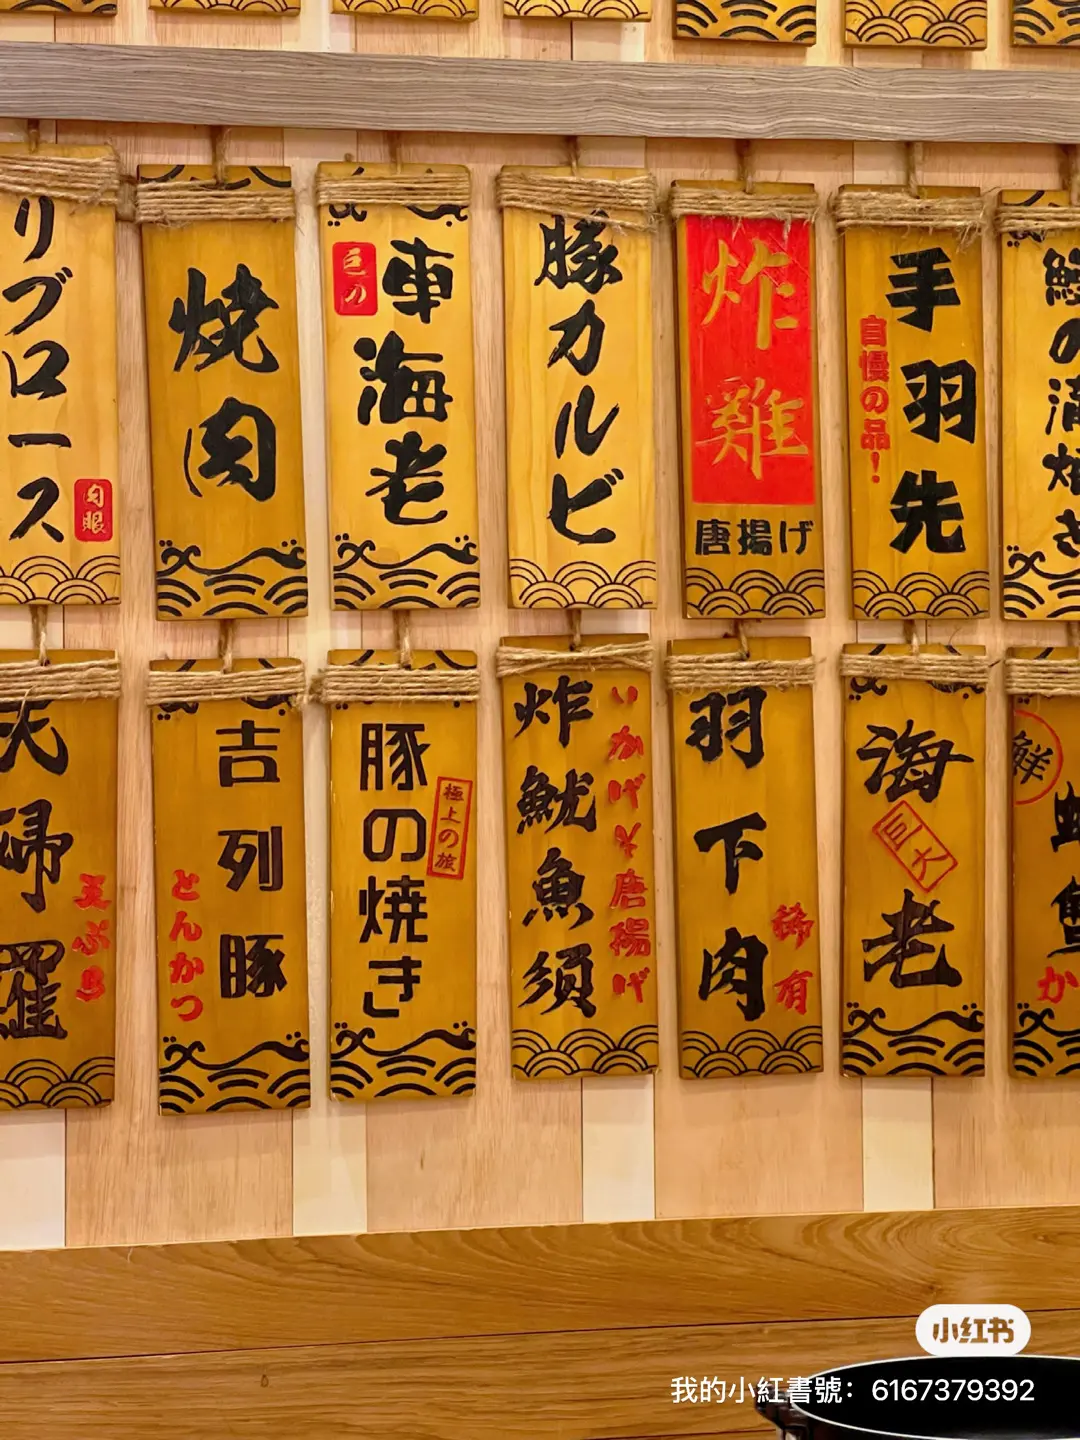 リブロース
肉眼
焼肉
車海老
豚カルビ
炸雞
唐揚げ
手羽先
自慢の品!
鰻の蒲焼き
天婦羅
天ぷら
吉列豚
とんかつ
豚の焼き
極上の旅
炸魷魚須
いかげそ唐揚げ
羽下肉
稀有
海老
巨大
鮮
か
小红书
我的小紅書號：6167379392